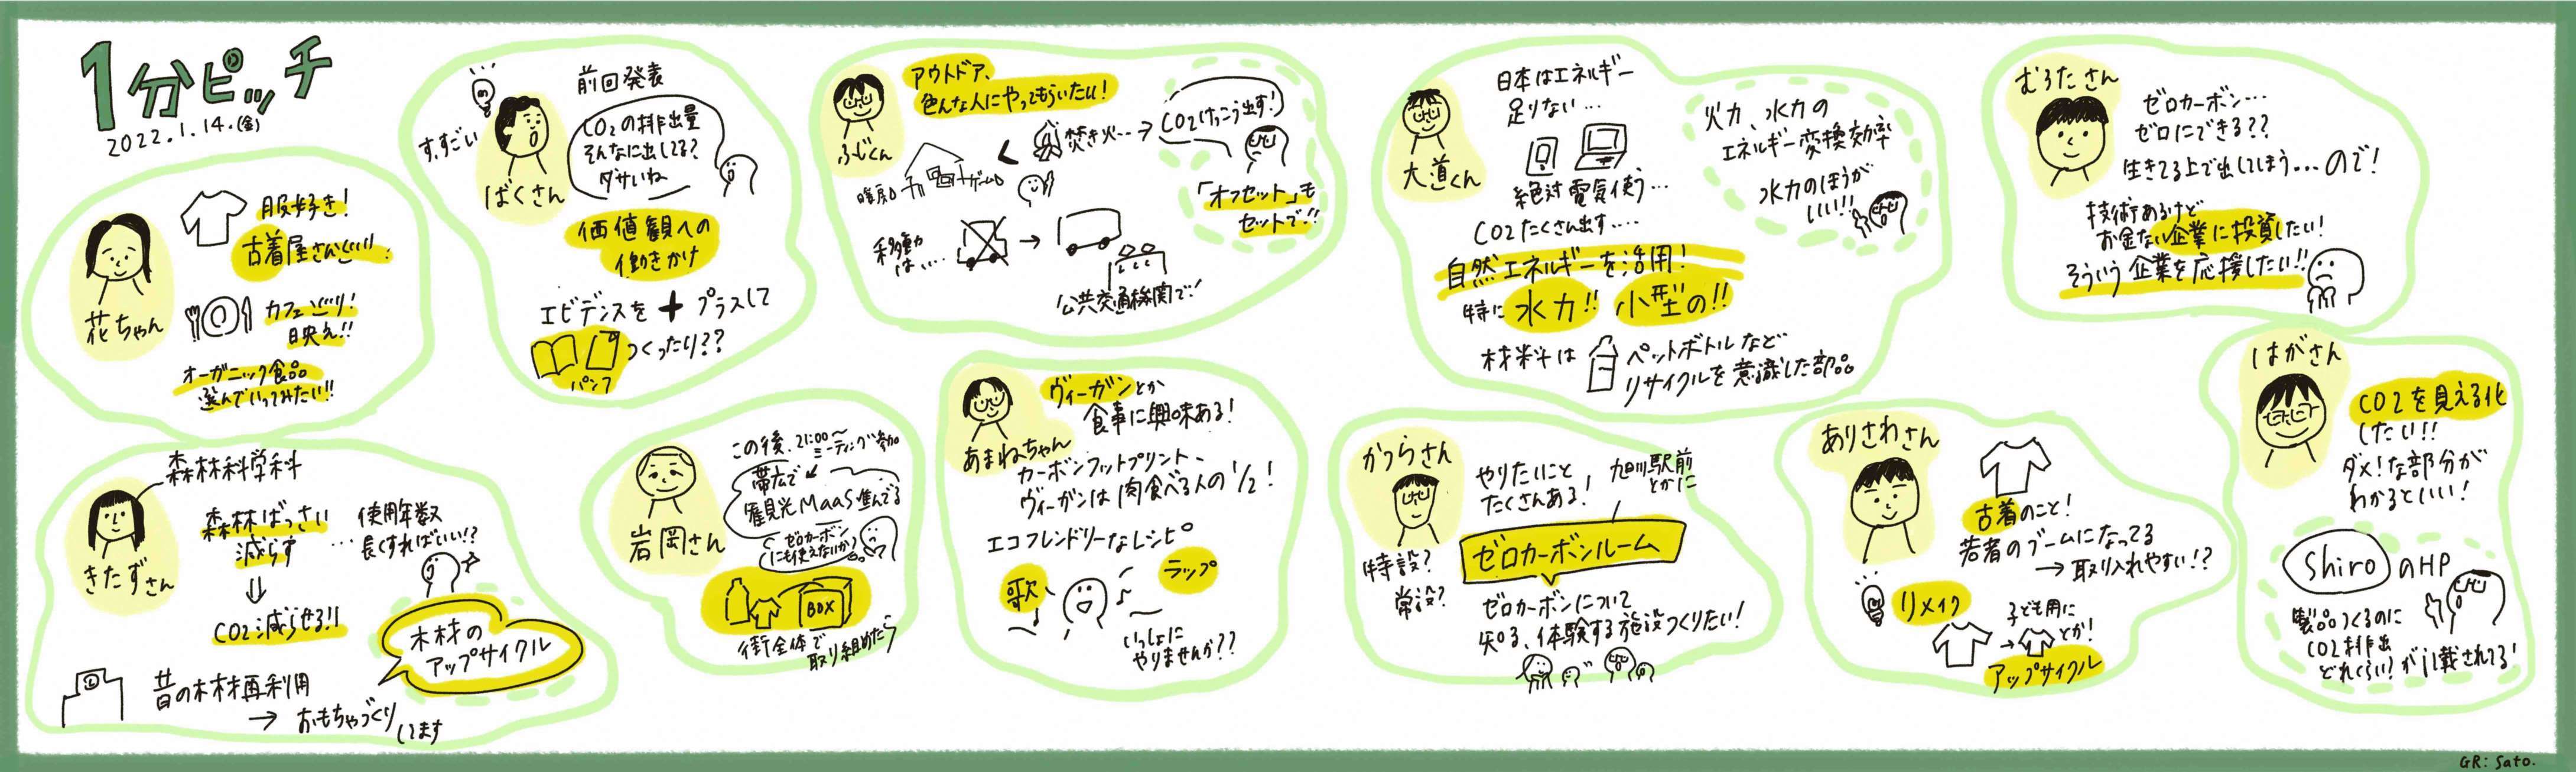 1分ピッチ
2022.1.14.(金)
花ちゃん
服好き!
古着屋さんぐい!!
カフェ巡り!
映え!!
オーガニック食品
選んでいってみたい!!
すすごい
ばくさん
前回発表
CO2の排出量
そんなに出してる?
ダサいね
価値観への
働きかけ
エビデンスを+プラスして
つくったり??
パンフ
ふじくん
アウトドア、
色んな人にやってもらいたい!
暖房
ゲーム
<
焚き火…→
CO2けっこう出す!
「オフセット」も
セットで!!
移動
は、…
公共交通機関で!
大道くん
日本はエネルギー
足りない…
絶対電気使う…
CO2たくさん出す….
自然エネルギーを活用!
特に水力!!小型の!!
材料は
ペットボトルなど
リサイクルを意識した部品
火力、水力の
エネルギー変換効率
水力のほうが
いい!!
むろたさん
ゼロカーボン…
ゼロにできる??
生きてる上で出してしまう…ので!
技術あるけど
お金ない企業に投資したい!
そういう企業を応援したい!!
きたずさん
森林科学科
森林ばっさい
減らす
⇓
CO2減らせる!!
…使用年数
長くすればいい!?
木材の
アップサイクル
昔の木材再利用
→おもちゃづくり
してます
岩岡さん
この後、21:00〜
ミーティング参加
帯広で
観光MaaS進んでる
ゼロカーボン
にも使えないか?
BOX
街全体で
取り組めたら
あまねちゃん
ヴィーガンとか
食事に興味ある!
カーボンフットプリント、
ヴィーガンは肉食べる人の1/2!
エコフレンドリーなレシピ
歌
ラップ
いっしょに
やりませんか??
かつらさん
特設?
常設?
やりたいこと
たくさんある!
旭川駅前
とかに
ゼロカーボンルーム
ゼロカーボンについて
知る、体験する施設つくりたい!
ありさわさん
古着のこと!
若者のブームになってる
→取り入れやすい!?
リメイク
子ども用に
とか!
アップサイクル
はがさん
CO2を見える化
したい!!
ダメ!な部分が
わかるといい!
ShiroのHP
製品つくるのに
CO2排出
どれくらい?が記載されてる!
GR: Sato.